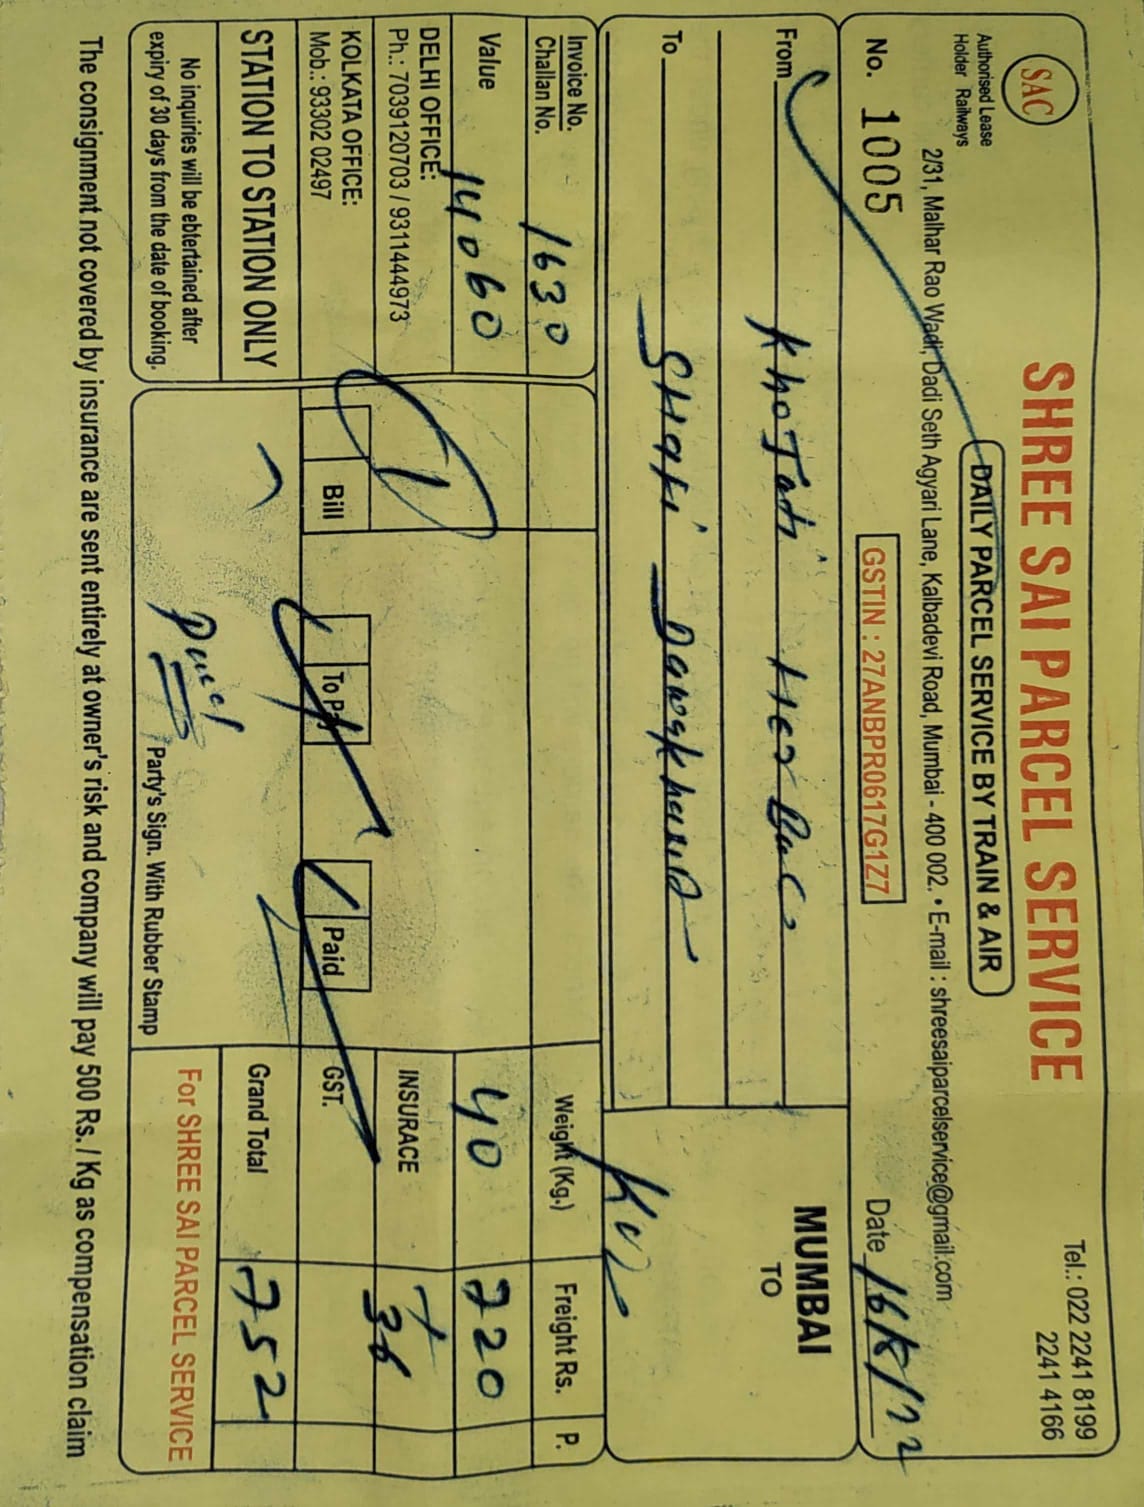 SAC
Authorised Lease
Holder Railways
SHREE SAI PARCEL SERVICE
Tel.: 022 2241 8199
2241 4166
DAILY PARCEL SERVICE BY TRAIN & AIR
2/31, Malhar Rao Wadi, Dadi Seth Agyari Lane, Kalbadevi Road, Mumbai - 400 002. • E-mail : shreesaiparcelservice@gmail.com
No. 1005
GSTIN : 27ANBPR0617G1Z7
Date
From
MUMBAI
TO
To
Invoice No.
Challan No. 1630
Weight (Kg.)
Freight Rs.
P.
Value 14060
40
720
DELHI OFFICE:
Ph.: 7039120703 / 9311444973
INSURACE
KOLKATA OFFICE:
Mob.: 93302 02497
Bill
To Pay
Paid
GST.
STATION TO STATION ONLY
Grand Total
752
No inquiries will be ebtertained after
expiry of 30 days from the date of booking.
Party's Sign. With Rubber Stamp
For SHREE SAI PARCEL SERVICE
The consignment not covered by insurance are sent entirely at owner's risk and company will pay 500 Rs. / Kg as compensation claim